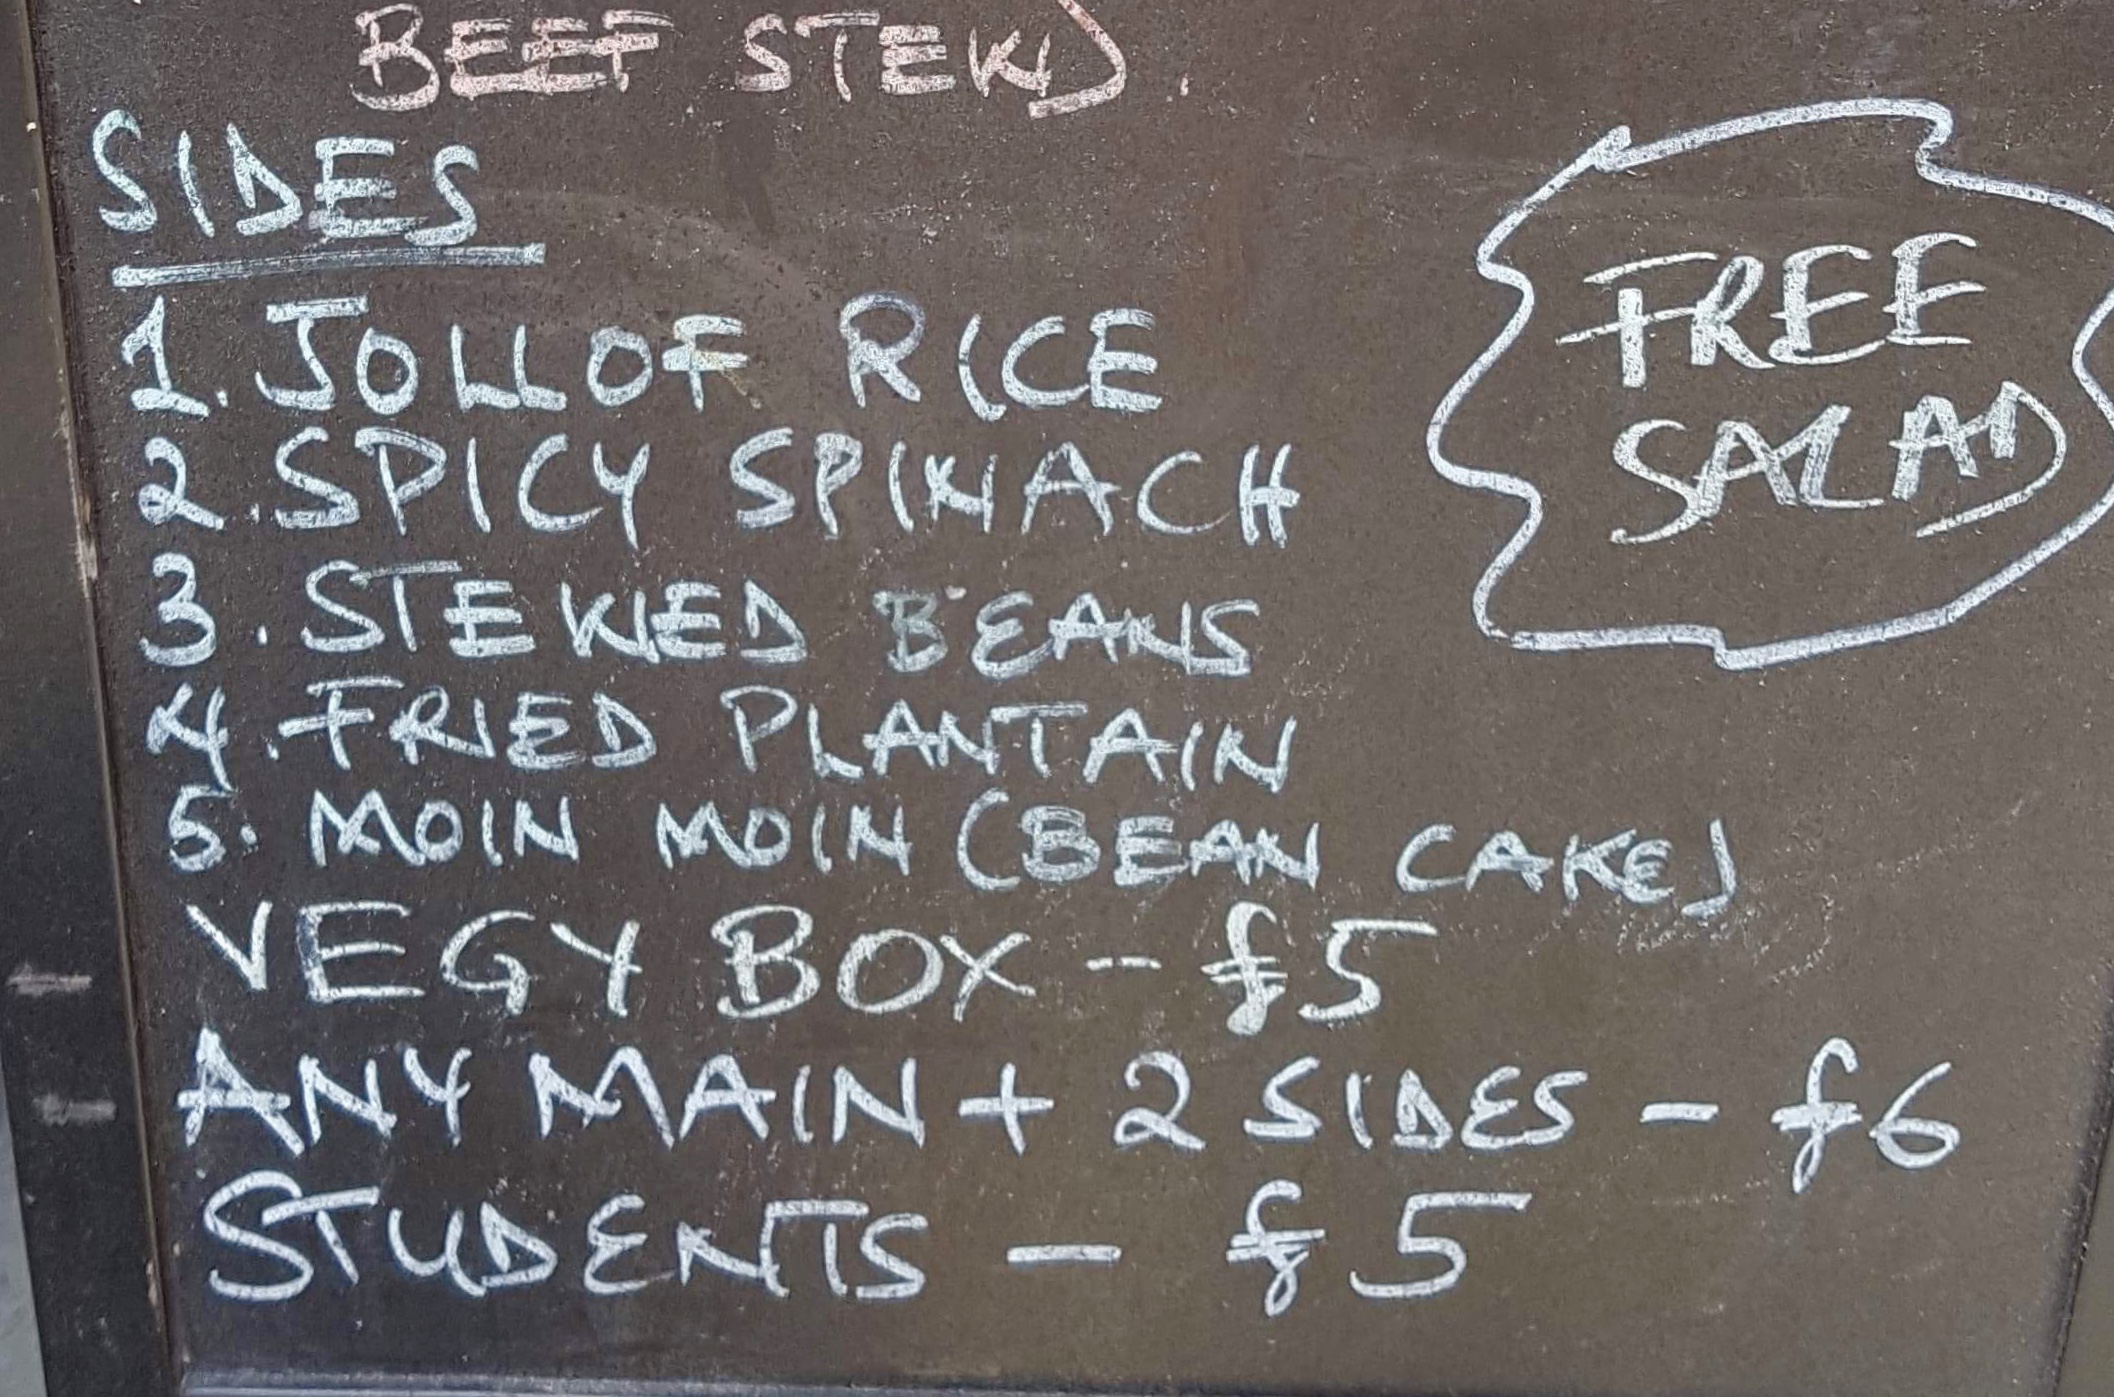 BEEF STEW).
SIDES
1. JOLLOF RICE
2. SPICY SPINACH
3. STEWED BEANS
4. FRIED PLANTAIN
5. MOIN MOIN (BEAN CAKE)
VEGY BOX - £5
ANY MAIN + 2 SIDES - £6
STUDENTS - £5
FREE
SALAD